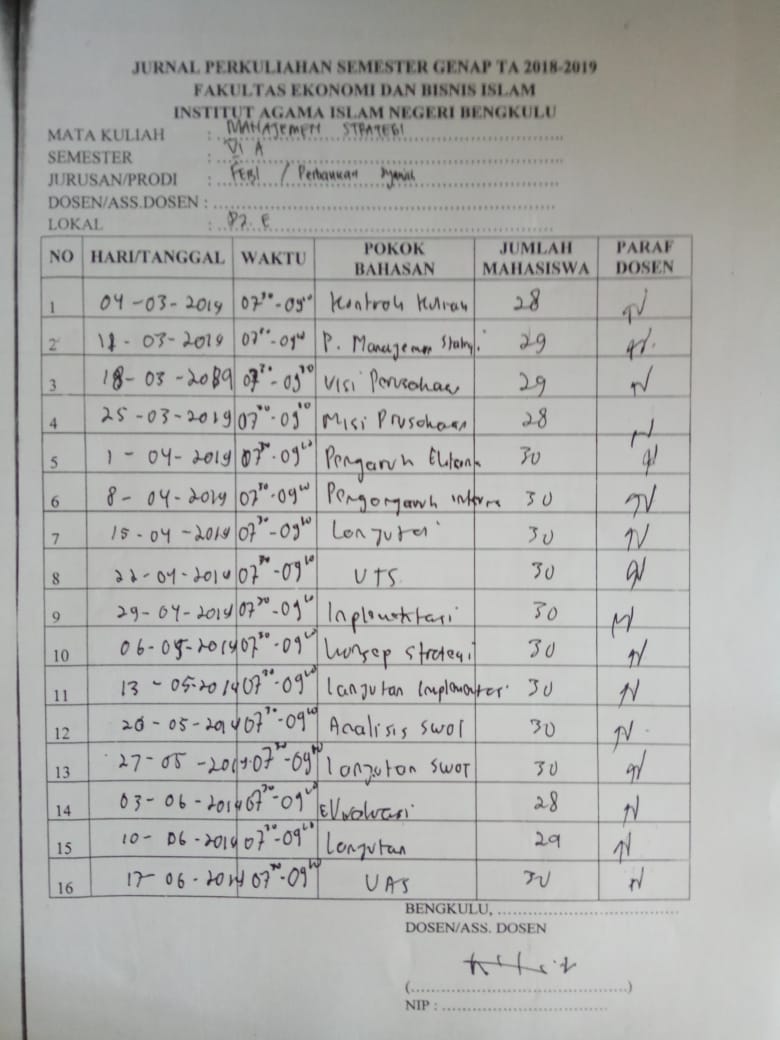 JURNAL PERKULIAHAN SEMESTER GENAP TA 2018-2019
FAKULTAS EKONOMI DAN BISNIS ISLAM
INSTITUT AGAMA ISLAM NEGERI BENGKULU
MATA KULIAH : MANAJEMEN STRATEGI
SEMESTER : VI A
JURUSAN/PRODI : FEBI / Perbankan Syariah
DOSEN/ASS.DOSEN :
LOKAL :
NO HARI/TANGGAL WAKTU POKOK BAHASAN JUMLAH MAHASISWA PARAF DOSEN
1 04-03-2019 07³⁰-09⁰⁰ Kontrak Kuliah 28
2 11-03-2019 29
3 18-03-2019 07³⁰-09¹⁰ Visi Perusahaan 29
4 25-03-2019 07³⁰-09¹⁰ Misi Prusahaan 28
5 1-04-2019 07³⁰-09¹⁰ Pengaruh 30
6 8-04-2019 07³⁰-09¹⁰ 30
7 15-04-2019 07³⁰-09¹⁰ Lanjutan 30
8 22-04-2019 07³⁰-09¹⁰ UTS 30
9 29-04-2019 07³⁰-09¹⁰ 30
10 06-05-2019 07³⁰-09¹⁰ Konsep Strategi 30
11 13-05-2019 07³⁰-09¹⁰ Lanjutan 30
12 20-05-2019 07³⁰-09¹⁰ Analisis SWOT 30
13 27-05-2019 07³⁰-09¹⁰ Lanjutan SWOT 30
14 03-06-2019 07³⁰-09¹⁰ 28
15 10-06-2019 07³⁰-09¹⁰ Lanjutan 29
16 17-06-2019 07³⁰-09¹⁰ UAS 30
BENGKULU,
DOSEN/ASS. DOSEN
NIP :